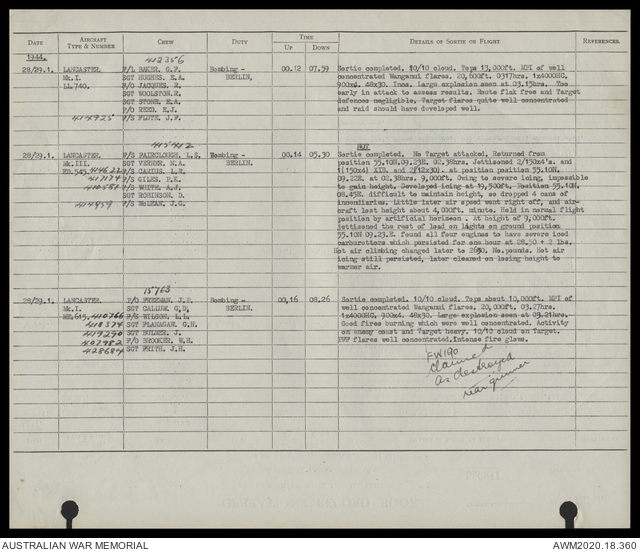 DATE AIRCRAFT TYPE & NUMBER CREW DUTY TIME Up DOWN DETAILS OF SORTIE OR FLIGHT REFERENCES.
1944.
412356
28/29.1. LANCASTER F/L BAKER, G.F. Bombing - 00.12 07.59 Sortie completed. 10/10 cloud. Tops 13,000ft. MPI of well
Mk.I. SGT HUGHES, E.A. BERLIN. concentrated Wanganui flares. 20,600ft. 0317hrs. 1x4000HC,
LL.740. F/O JACQUES, R. 900x4. 48x30. Incs. Large explosion seen at 03.15hrs. Too
SGT WOOLSTON, R. early in attack to assess results. Route flak free and Target
SGT STONE, E.A. defences negligible. Target flares quite well concentrated
F/O REED, K.J. and raid should have developed well.
414925 F/S FLUTE, J.F.
415412 NOT
28/29.1. LANCASTER F/S FAIRCLOUGH, L.S. Bombing - 00.14 05.30 Sortie completed. No Target attacked. Returned from
Mk.III. SGT VERNER, H.A. BERLIN. position 55.10N.09.23E. 02.38hrs. Jettisoned 2/150x4's. and
ED.545. F/S CARIUS, L.N. 1((150x4) XIB. and 2/12x30). at position position 55.10N.
417174 F/S GILES, P.K. 09.22E. at 02.38hrs. 9,000ft. Owing to severe icing, impossible
410581 F/S WHITE, A.J. to gain height. Developed icing at 19,500ft. Position 55.10N.
SGT ROBINSON, D. 08.45E. difficult to maintain height, so dropped 4 cans of
414959 F/S McLEAN, J.G. incendiaries. Little later air speed went right off, and air-
craft lost height about 4,000ft. minute. Held in normal flight
position by artificial horizon. At height of 9,000ft.
jettisoned the rest of load on lights on ground position
55.10N 09.23.E. found all four engines to have severe iced
carburettors which persisted for one hour at 28.50 + 2 lbs.
Hot air climbing changed later to 2650. No.pounds. Hot air
icing still persisted, later cleared on losing height to
warmer air.
15763
28/29.1. LANCASTER F/O FREEMAN, J.P. Bombing - 00,16 08.26 Sortie completed. 10/10 cloud. Tops about 10,000ft. MPI of
Mk.I. SGT CALLUM, G.D. BERLIN. well concentrated Wanganui flares. 20,000ft. 03.27hrs.
ME.615. 410766 F/S WILSON, L.L. 1x4000HC, 900x4. 48x30. Large explosion seen at 03.21hrs.
418374 SGT FLANAGAN, G.H. Good fires burning which were well concentrated. Activity
419290 SGT BULMER, J. on enemy coast and Target heavy. 10/10 cloud on Target.
407982 F/O BROOKER, W.H. PFF flares well concentrated. Intense fire glows.
428684 SGT FRITH, J.H.
FW190
claimed
as destroyed
rear gunner
AUSTRALIAN WAR MEMORIAL AWM2020.18.360